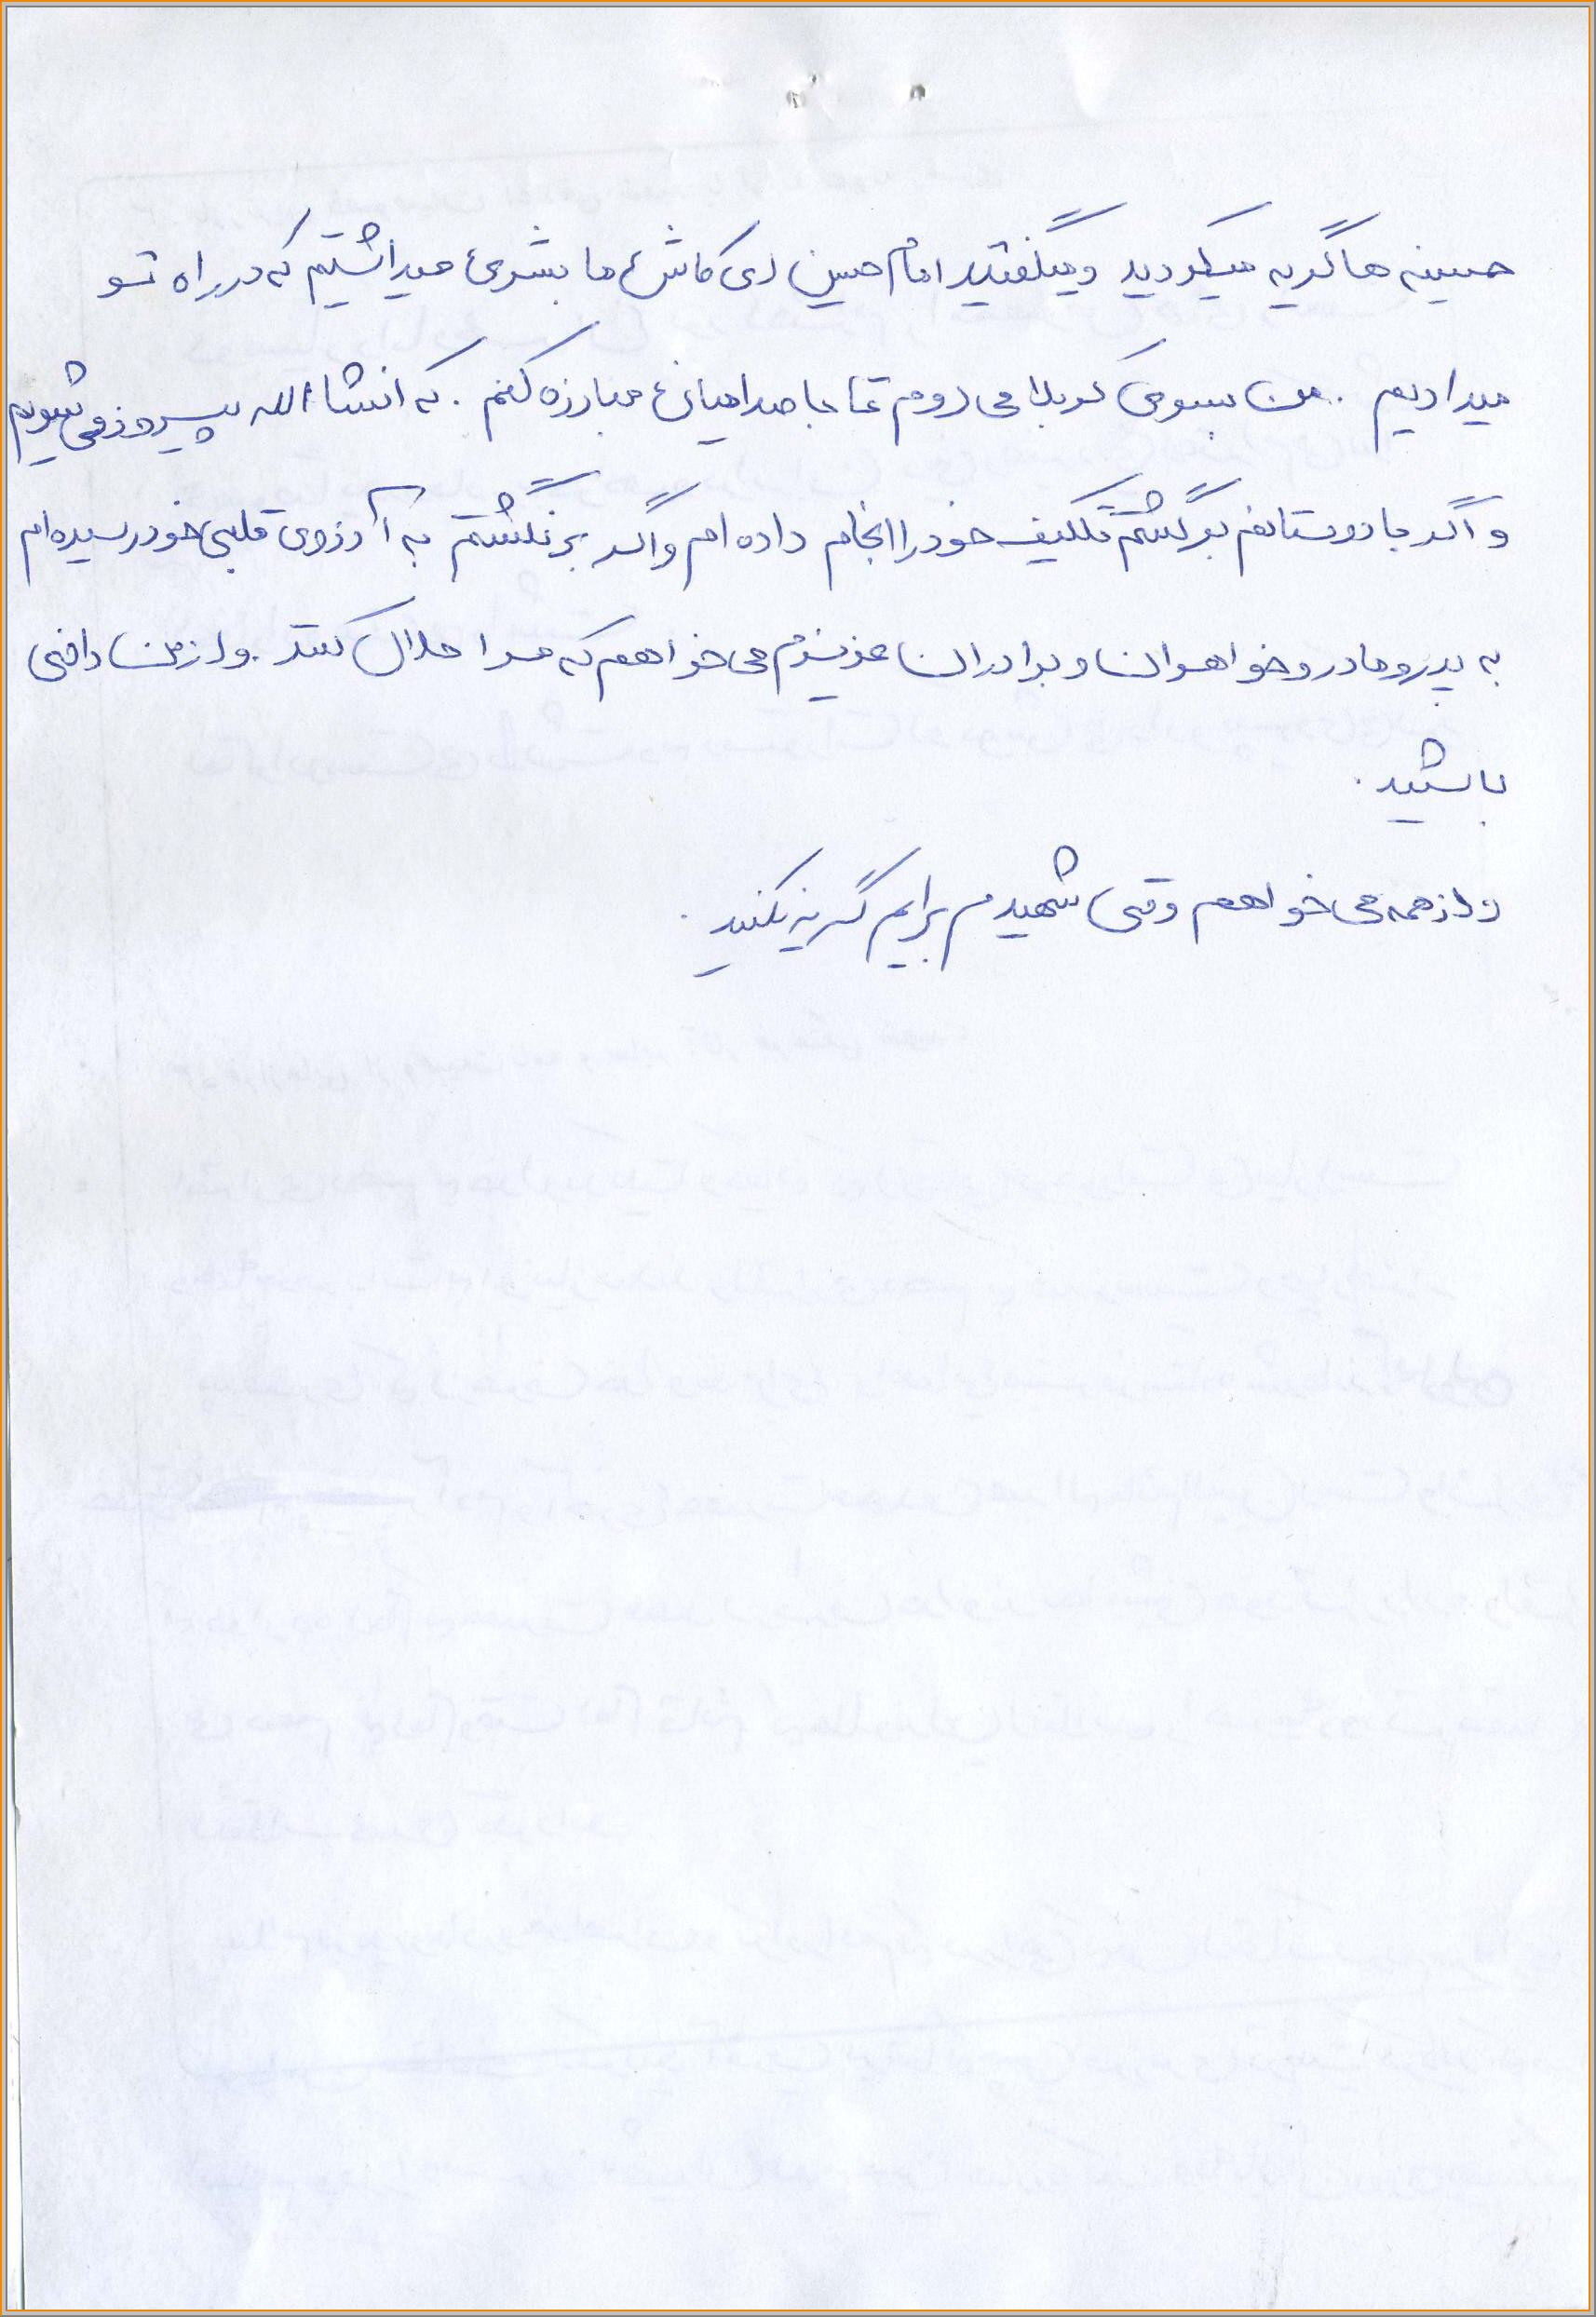 حسینه ها گریه میکردید و میگفتید امام حسین ای کاش ما بشری میداشتیم که در راه تو
میدادیم . من بسوی کربلا می روم تا با صدامیان مبارزه کنم . که انشا الله پیروز می شویم
و اگر با دوستانم برگشتم تکلیف خود را انجام داده ام و اگر برنگشتم به آرزوی قلبی خود رسیده ام
به پدر و مادر و خواهران و برادران عزیزم می خواهم که مرا حلال کنند . و از من راضی
باشید .
و از همه می خواهم وقتی شهیدم برایم گریه نکنید .